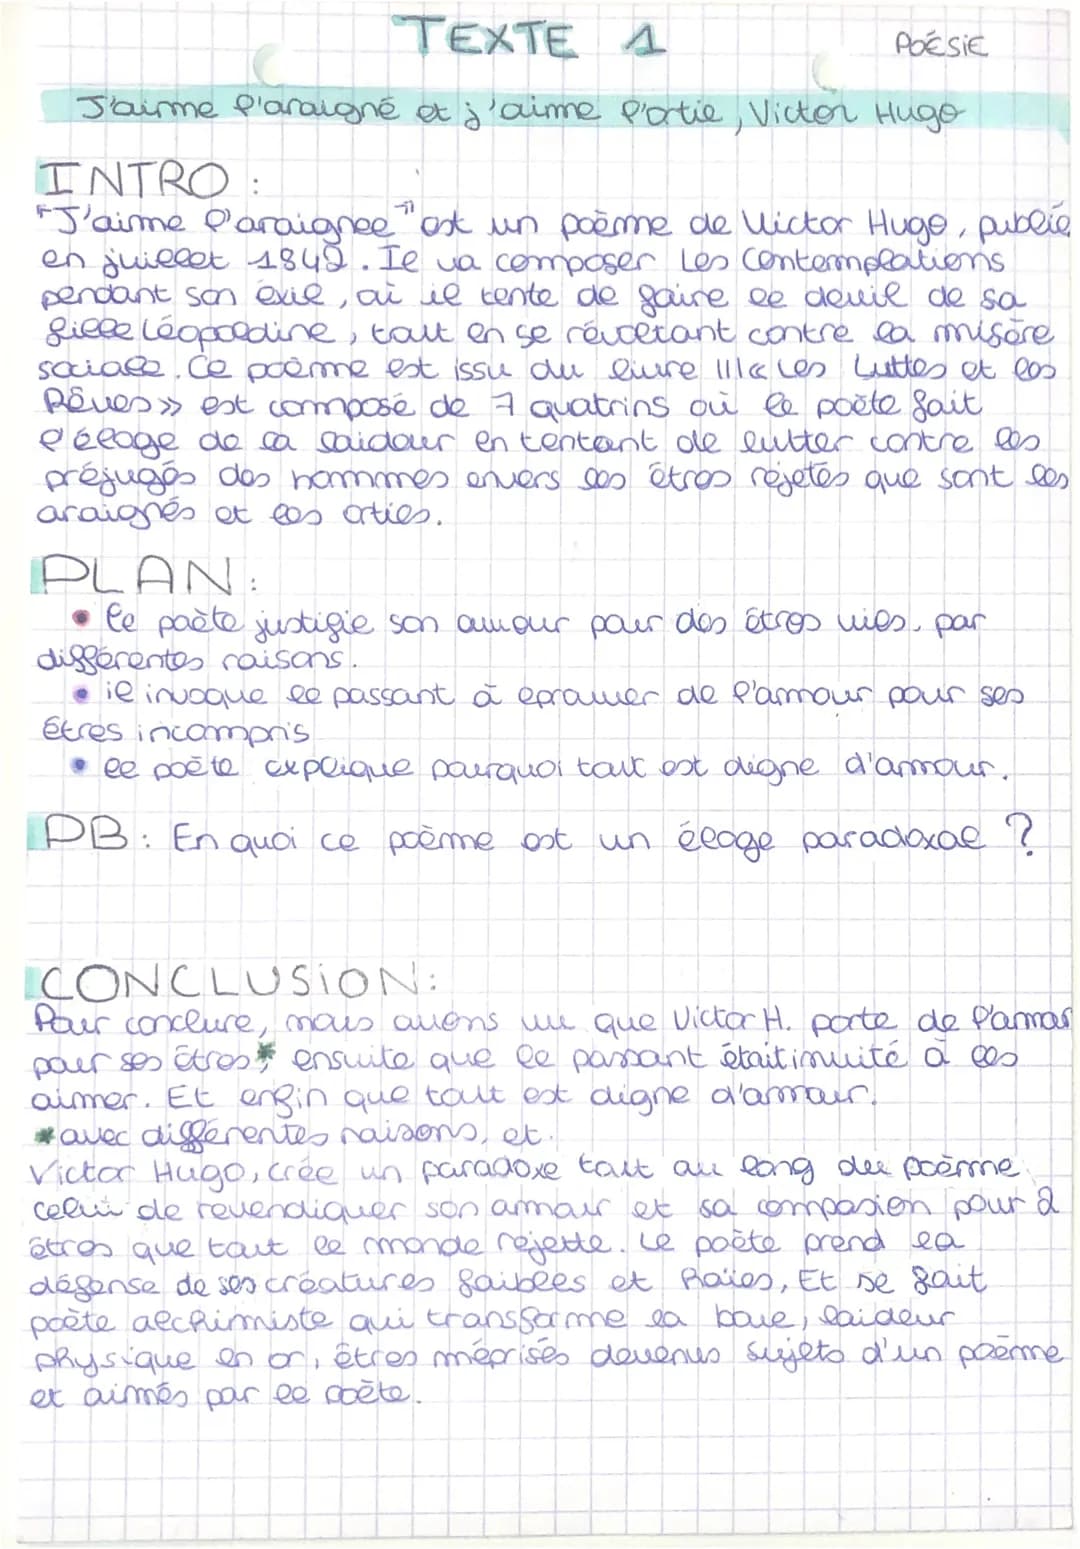 TEXTE 1
POÉSIE
J'aime l'araigné et j'aime l'ortie, Victor Hugo
INTRO :
"J'aime l'araignee" est un poème de Victor Hugo, publié
en juillet 1842. Il va composer Les Contemplations
pendant son exil, où il tente de faire le deuil de sa
fille Léopoldine, tout en se révoltant contre la misère
sociale. Ce poème est issu du livre III « Les Luttes et les
Rêves » est composé de 7 quatrins où le poète fait
l'éloge de la laideur en tentant de lutter contre les
préjugés des hommes envers ses êtres rejetés que sont les
araignés et les orties.
PLAN :
• le poète justifie son amour pour des êtres vils, par
différentes raisons.
• il invoque le passant à éprouver de l'amour pour ses
êtres incompris
• le poète explique pourquoi tout est digne d'amour.
PB : En quoi ce poème est un éloge paradoxal ?
CONCLUSION :
Pour conclure, nous avons vu que Victor H. porte de l'amour
pour ses êtres * ensuite que le passant était invité à les
aimer. Et enfin que tout est digne d'amour.
* avec différentes raisons, et.
Victor Hugo, crée un paradoxe tout au long du poème
celui de revendiquer son amour et sa compasion pour 2
êtres que tout le monde rejette. Le poète prend la
défense de ses créatures faibles et haïes, Et se fait
poète alchimiste qui transforme la boue, laideur
physique en or, êtres méprisés devenus sujets d'un poème
et aimés par le poète.